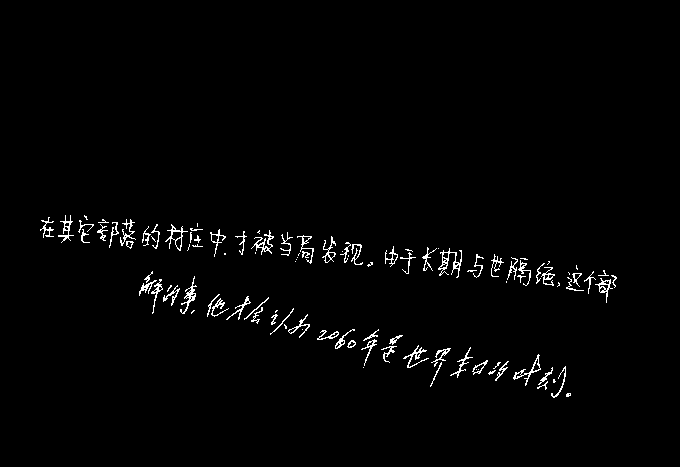 在其它部落的村庄中,才被当局发现。由于长期与世隔绝,这个部
解的事,他才会认为2060年是世界末日的时刻。